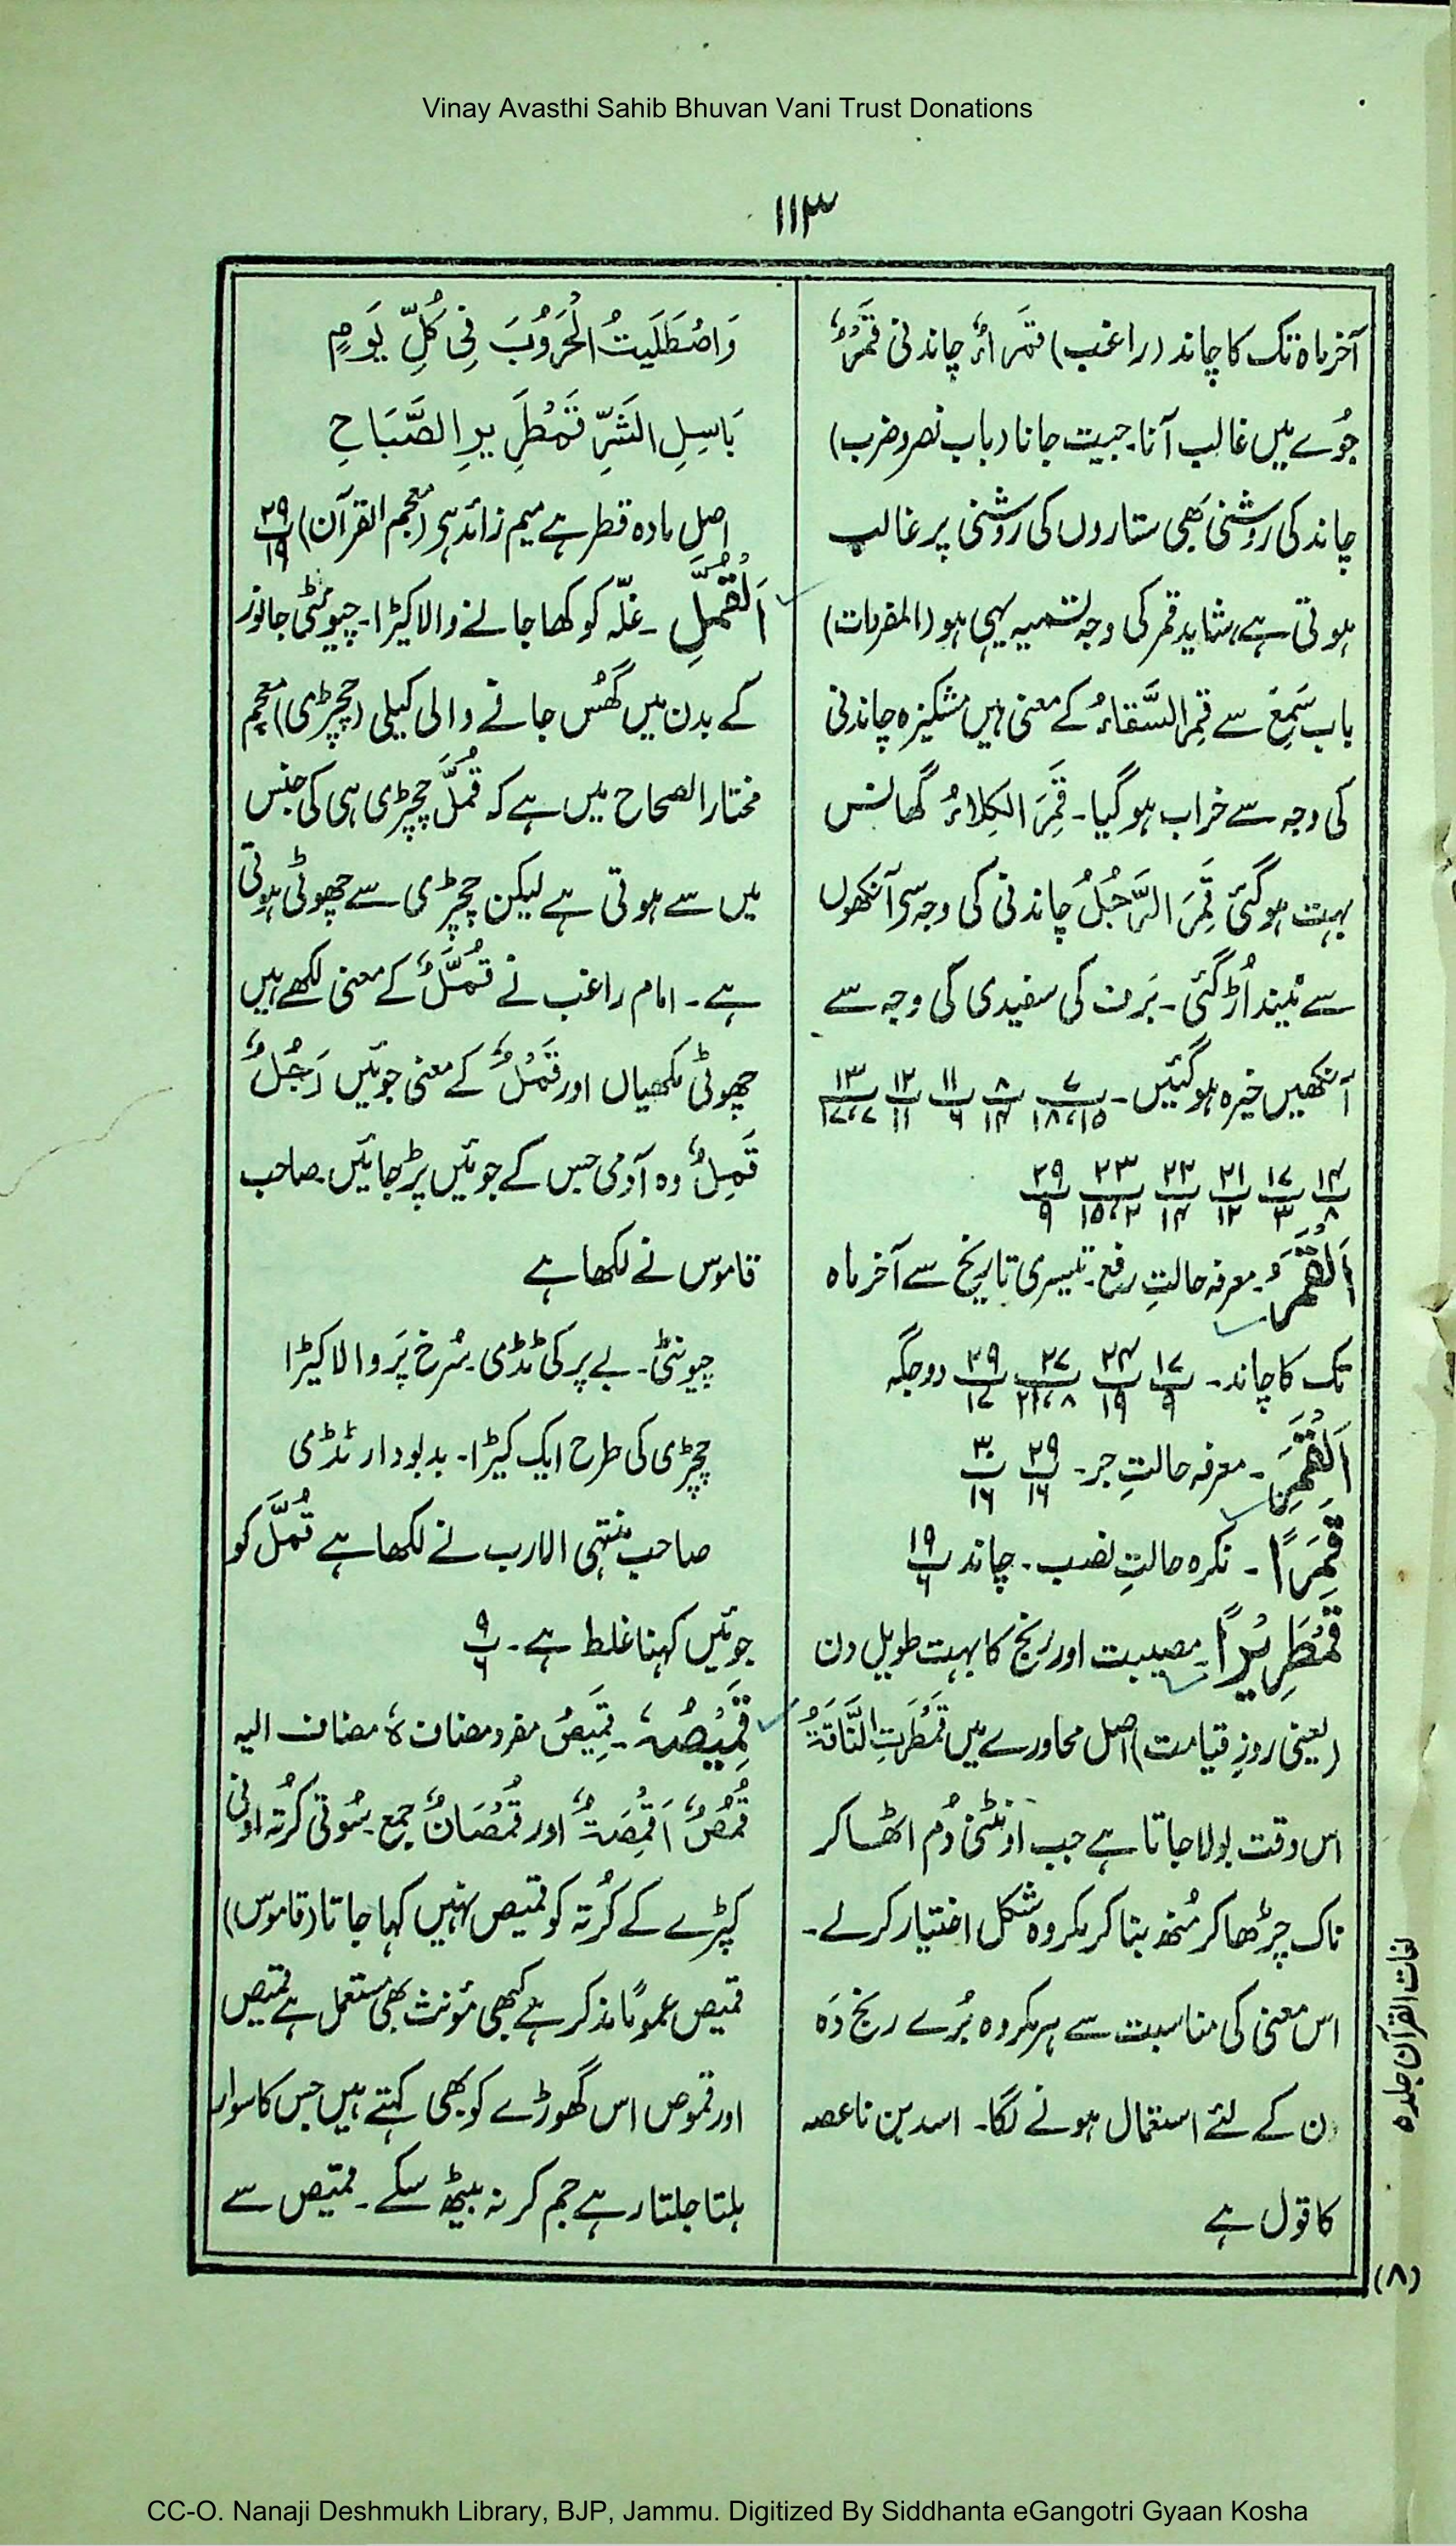 Vinay Avasthi Sahib Bhuvan Vani Trust Donations
۱۱۳
آخر ماہ تک کا چاند (راغب) قمَراءُ چاندنی قَمْرٌ
جُوے میں غالب آنا۔ جیت جانا (باب نصر و ضرب)
چاند کی روشنی بھی ستاروں کی روشنی پر غالب
ہوتی ہے، شاید قمر کی وجہ تسمیہ یہی ہو (المفردات)
باب سَمِعَ سے قَمِرَ السَّقاءُ کے معنی ہیں مشکیزہ چاندنی
کی وجہ سے خراب ہو گیا۔ قَمِرَ الکِلاءُ گھانس
بہت ہو گئی قَمِرَ الرَّجُلُ چاندنی کی وجہ سی آنکھوں
سے نیند اُڑ گئی۔ بَرف کی سفیدی کی وجہ سے
آنکھیں خیرہ ہو گئیں۔ ۷/۱۸،۱۵ ۸/۱۴ ۱۱/۶ ۱۲/۱۱ ۱۳/۱۷،۷
۱۴/۸ ۱۷/۳ ۲۱/۱۲ ۲۲/۱۴ ۲۳/۱۵،۲ ۲۹/۹
اَلْقَمَرُ۔ معرفہ حالتِ رفع۔ تیسری تاریخ سے آخر ماہ
تک کا چاند۔ ۱۷/۹ ۲۴/۱۹ ۲۷/۲۱،۸ ۲۹/۱۷ دو جگہ
اَلْقَمَرِ۔ معرفہ حالتِ جر۔ ۲۹/۱۶ ۳۰/۱۶
قَمَرًا۔ نکرہ حالتِ نصب۔ چاند ۱۹/۶
قَمْطَرِیْرًا۔ مصیبت اور رنج کا بہت طویل دن
(یعنی روزِ قیامت) اصل محاورے میں قَمْطَرَتِ النَّاقَۃُ
اس وقت بولا جاتا ہے جب اونٹنی دُم اٹھا کر
ناک چڑھا کر مُنھ بنا کر مکروہ شکل اختیار کر لے۔
اس معنی کی مناسبت سے ہر مکروہ بُرے رنج دَہ
دن کے لئے استعمال ہونے لگا۔ اسد بن ناعصہ
کا قول ہے
وَاصْطَلَیتُ الْحُرُوْبَ فِی کُلِّ یَومٍ
بَاسِلِ الشَّرِّ قَمْطَرِیرِ الصَّبَاحِ
اصل مادہ قطر ہے میم زائد ہی (معجم القرآن) ۲۹/۱۹
اَلْقُمَّلِ۔ غلّہ کو کھا جانے والا کیڑا۔ چیونٹی جانور
کے بدن میں گھُس جانے والی کیلی (چچڑی) معجم
مختار الصحاح میں ہے کہ قُمَّلَ چچڑی ہی کی جنس
میں سے ہوتی ہے لیکن چچڑی سے چھوٹی ہوتی
ہے۔ امام راغب نے قُمَّلٌ کے معنی لکھے ہیں
چھوٹی مکھیاں اور قَمْلٌ کے معنی جوئیں رَجُلٌ
قَمِلٌ وہ آدمی جس کے جوئیں پڑ جائیں۔ صاحب
قاموس نے لکھا ہے
چیونٹی۔ بے پر کی ٹڈی۔ سُرخ پَر والا کیڑا
چچڑی کی طرح ایک کیڑا۔ بدبودار ٹڈی
صاحب منتہی الارب نے لکھا ہے قُمَّلَ کو
جوئیں کہنا غلط ہے۔ ۹/۶
قَمِیْصُہٗ۔ قَمِیصُ مفرد مضاف ہٗ مضاف الیہ
قُمُصٌ اَقْمِصَۃٌ اور قُمْصَانٌ جمع۔ سُوتی کُرتہ اونی
کپڑے کے کُرتہ کو قمیص نہیں کہا جاتا (قاموس)
قمیص عمومًا مذکر ہے کبھی مؤنث بھی مستعمل ہے قمیص
اور قموص اس گھوڑے کو بھی کہتے ہیں جس کا سوار
ہلتا جلتا رہے جم کر نہ بیٹھ سکے۔ قمیص سے
لغات القرآن جلد ۵
(۸)
CC-O. Nanaji Deshmukh Library, BJP, Jammu. Digitized By Siddhanta eGangotri Gyaan Kosha